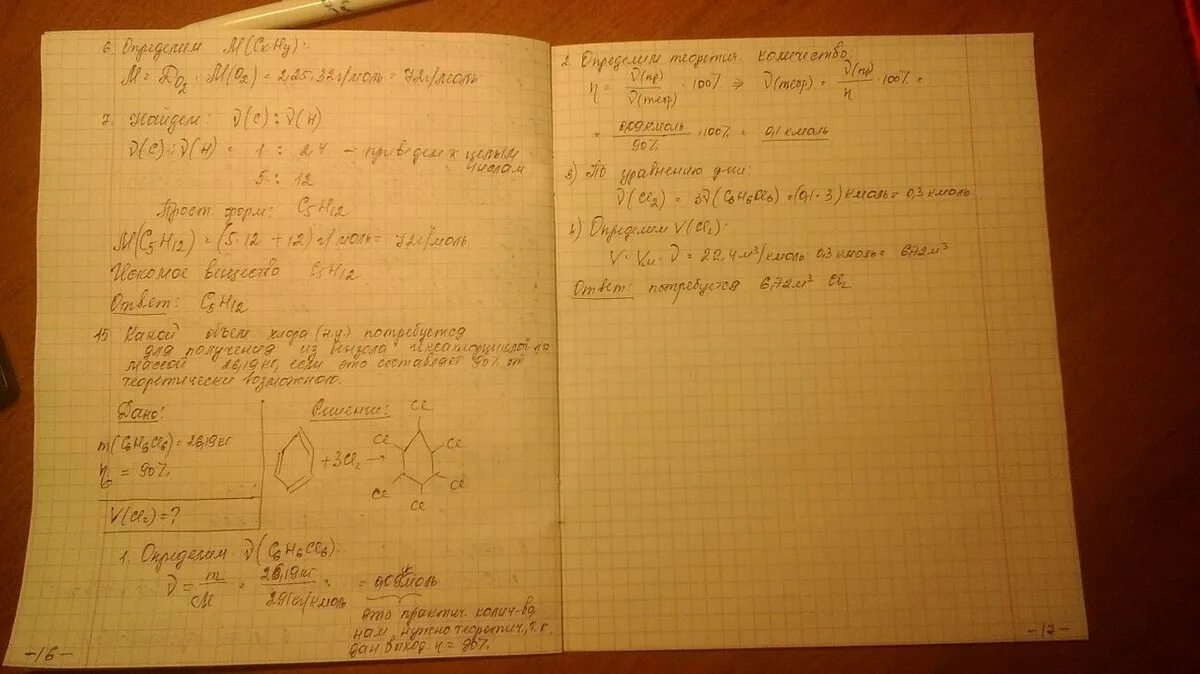 6. Определим M(CxHy):
M = D O2 · M(O2) = 2,25·32г/моль = 72г/моль
7. Найдем: ν(C) : ν(H)
ν(C) : ν(H) = 1 : 2,4 – приведем к целым
числам
5 : 12
Прост. форм: C5H12
M(C5H12) = (5·12 + 12) г/моль = 72г/моль
Искомое вещество C5H12
Ответ: C5H12
15 Какой объем хлора (н.у.) потребуется
для получения из бензола гексахлорциклогексана
массой 26,19 кг, если это составляет 90% от
теоретически возможного.
Дано:
m(C6H6Cl6) = 26,19кг
η = 90%
V(Cl2) = ?
Решение:
+ 3Cl2 →
Cl
Cl
Cl
Cl
Cl
Cl
1. Определим ν(C6H6Cl6):
ν = m/M = 26,19кг / 291кг/кмоль = 0,09кмоль
это практич. колич-во,
нам нужно теоретич., т.к.
дан выход η = 90%.
-16-
2. Определим теоретич. количество
η = ν(пр)/ν(теор) · 100% ⇒ ν(теор) = ν(пр)/η · 100% =
= 0,09кмоль/90% · 100% = 0,1 кмоль
3) По уравнению р-ции:
ν(Cl2) = 3ν(C6H6Cl6) = (0,1·3) кмоль = 0,3 кмоль
4) Определим V(Cl2):
V = Vм · ν = 22,4 м³/кмоль · 0,3 кмоль = 6,72 м³
Ответ: потребуется 6,72 м³ Cl2
-17-